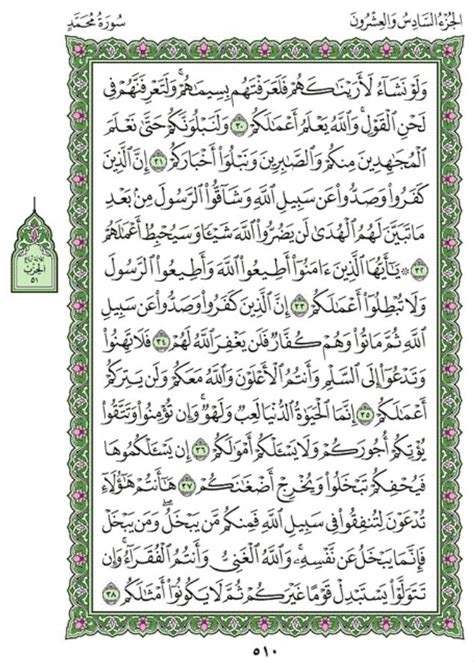 الجزء السادس والعشرون
سورة محمد
وَلَوْ نَشَآءُ لَأَرَيْنَٰكَهُمْ فَلَعَرَفْتَهُم بِسِيمَٰهُمْ ۚ وَلَتَعْرِفَنَّهُمْ فِى
لَحْنِ ٱلْقَوْلِ ۚ وَٱللَّهُ يَعْلَمُ أَعْمَٰلَكُمْ ٣٠ وَلَنَبْلُوَنَّكُمْ حَتَّىٰ نَعْلَمَ
ٱلْمُجَٰهِدِينَ مِنكُمْ وَٱلصَّٰبِرِينَ وَنَبْلُوَا۟ أَخْبَارَكُمْ ٣١ إِنَّ ٱلَّذِينَ
كَفَرُوا۟ وَصَدُّوا۟ عَن سَبِيلِ ٱللَّهِ وَشَآقُّوا۟ ٱلرَّسُولَ مِنۢ بَعْدِ
مَا تَبَيَّنَ لَهُمُ ٱلْهُدَىٰ لَن يَضُرُّوا۟ ٱللَّهَ شَيْـًٔا وَسَيُحْبِطُ أَعْمَٰلَهُمْ
٣٢ ۞ يَٰٓأَيُّهَا ٱلَّذِينَ ءَامَنُوٓا۟ أَطِيعُوا۟ ٱللَّهَ وَأَطِيعُوا۟ ٱلرَّسُولَ
وَلَا تُبْطِلُوٓا۟ أَعْمَٰلَكُمْ ٣٣ إِنَّ ٱلَّذِينَ كَفَرُوا۟ وَصَدُّوا۟ عَن سَبِيلِ
ٱللَّهِ ثُمَّ مَاتُوا۟ وَهُمْ كُفَّارٌ فَلَن يَغْفِرَ ٱللَّهُ لَهُمْ ٣٤ فَلَا تَهِنُوا۟
وَتَدْعُوٓا۟ إِلَى ٱلسَّلْمِ وَأَنتُمُ ٱلْأَعْلَوْنَ وَٱللَّهُ مَعَكُمْ وَلَن يَتِرَكُمْ
أَعْمَٰلَكُمْ ٣٥ إِنَّمَا ٱلْحَيَوٰةُ ٱلدُّنْيَا لَعِبٌ وَلَهْوٌ ۚ وَإِن تُؤْمِنُوا۟ وَتَتَّقُوا۟
يُؤْتِكُمْ أُجُورَكُمْ وَلَا يَسْـَٔلْكُمْ أَمْوَٰلَكُمْ ٣٦ إِن يَسْـَٔلْكُمُوهَا
فَيُحْفِكُمْ تَبْخَلُوا۟ وَيُخْرِجْ أَضْغَٰنَكُمْ ٣٧ هَٰٓأَنتُمْ هَٰٓؤُلَآءِ
تُدْعَوْنَ لِتُنفِقُوا۟ فِى سَبِيلِ ٱللَّهِ فَمِنكُم مَّن يَبْخَلُ ۖ وَمَن يَبْخَلْ
فَإِنَّمَا يَبْخَلُ عَن نَّفْسِهِۦ ۚ وَٱللَّهُ ٱلْغَنِىُّ وَأَنتُمُ ٱلْفُقَرَآءُ ۚ وَإِن
تَتَوَلَّوْا۟ يَسْتَبْدِلْ قَوْمًا غَيْرَكُمْ ثُمَّ لَا يَكُونُوٓا۟ أَمْثَٰلَكُم ٣٨
الحزب
٥١
٥١٠